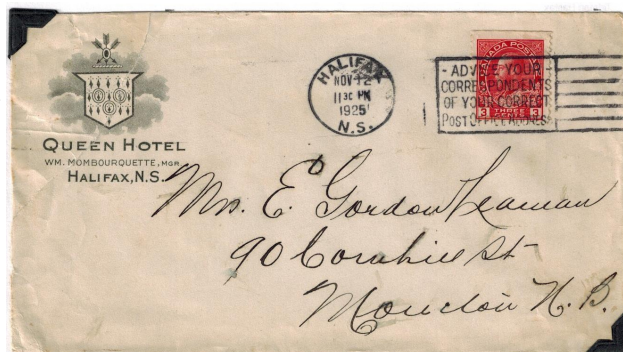 QUEEN HOTEL
WM. MOMBOURQUETTE, MGR
HALIFAX, N.S.
HALIFAX
NOV 12
1130 PM
1925
N.S.
CANADA POST
3 THREE 3
- ADVISE YOUR
CORRESPONDENTS
OF YOUR CORRECT
POST OFFICE ADDRESS
Mrs. E. Gordon Leaman
90 Cornhill St
Moncton N.B.